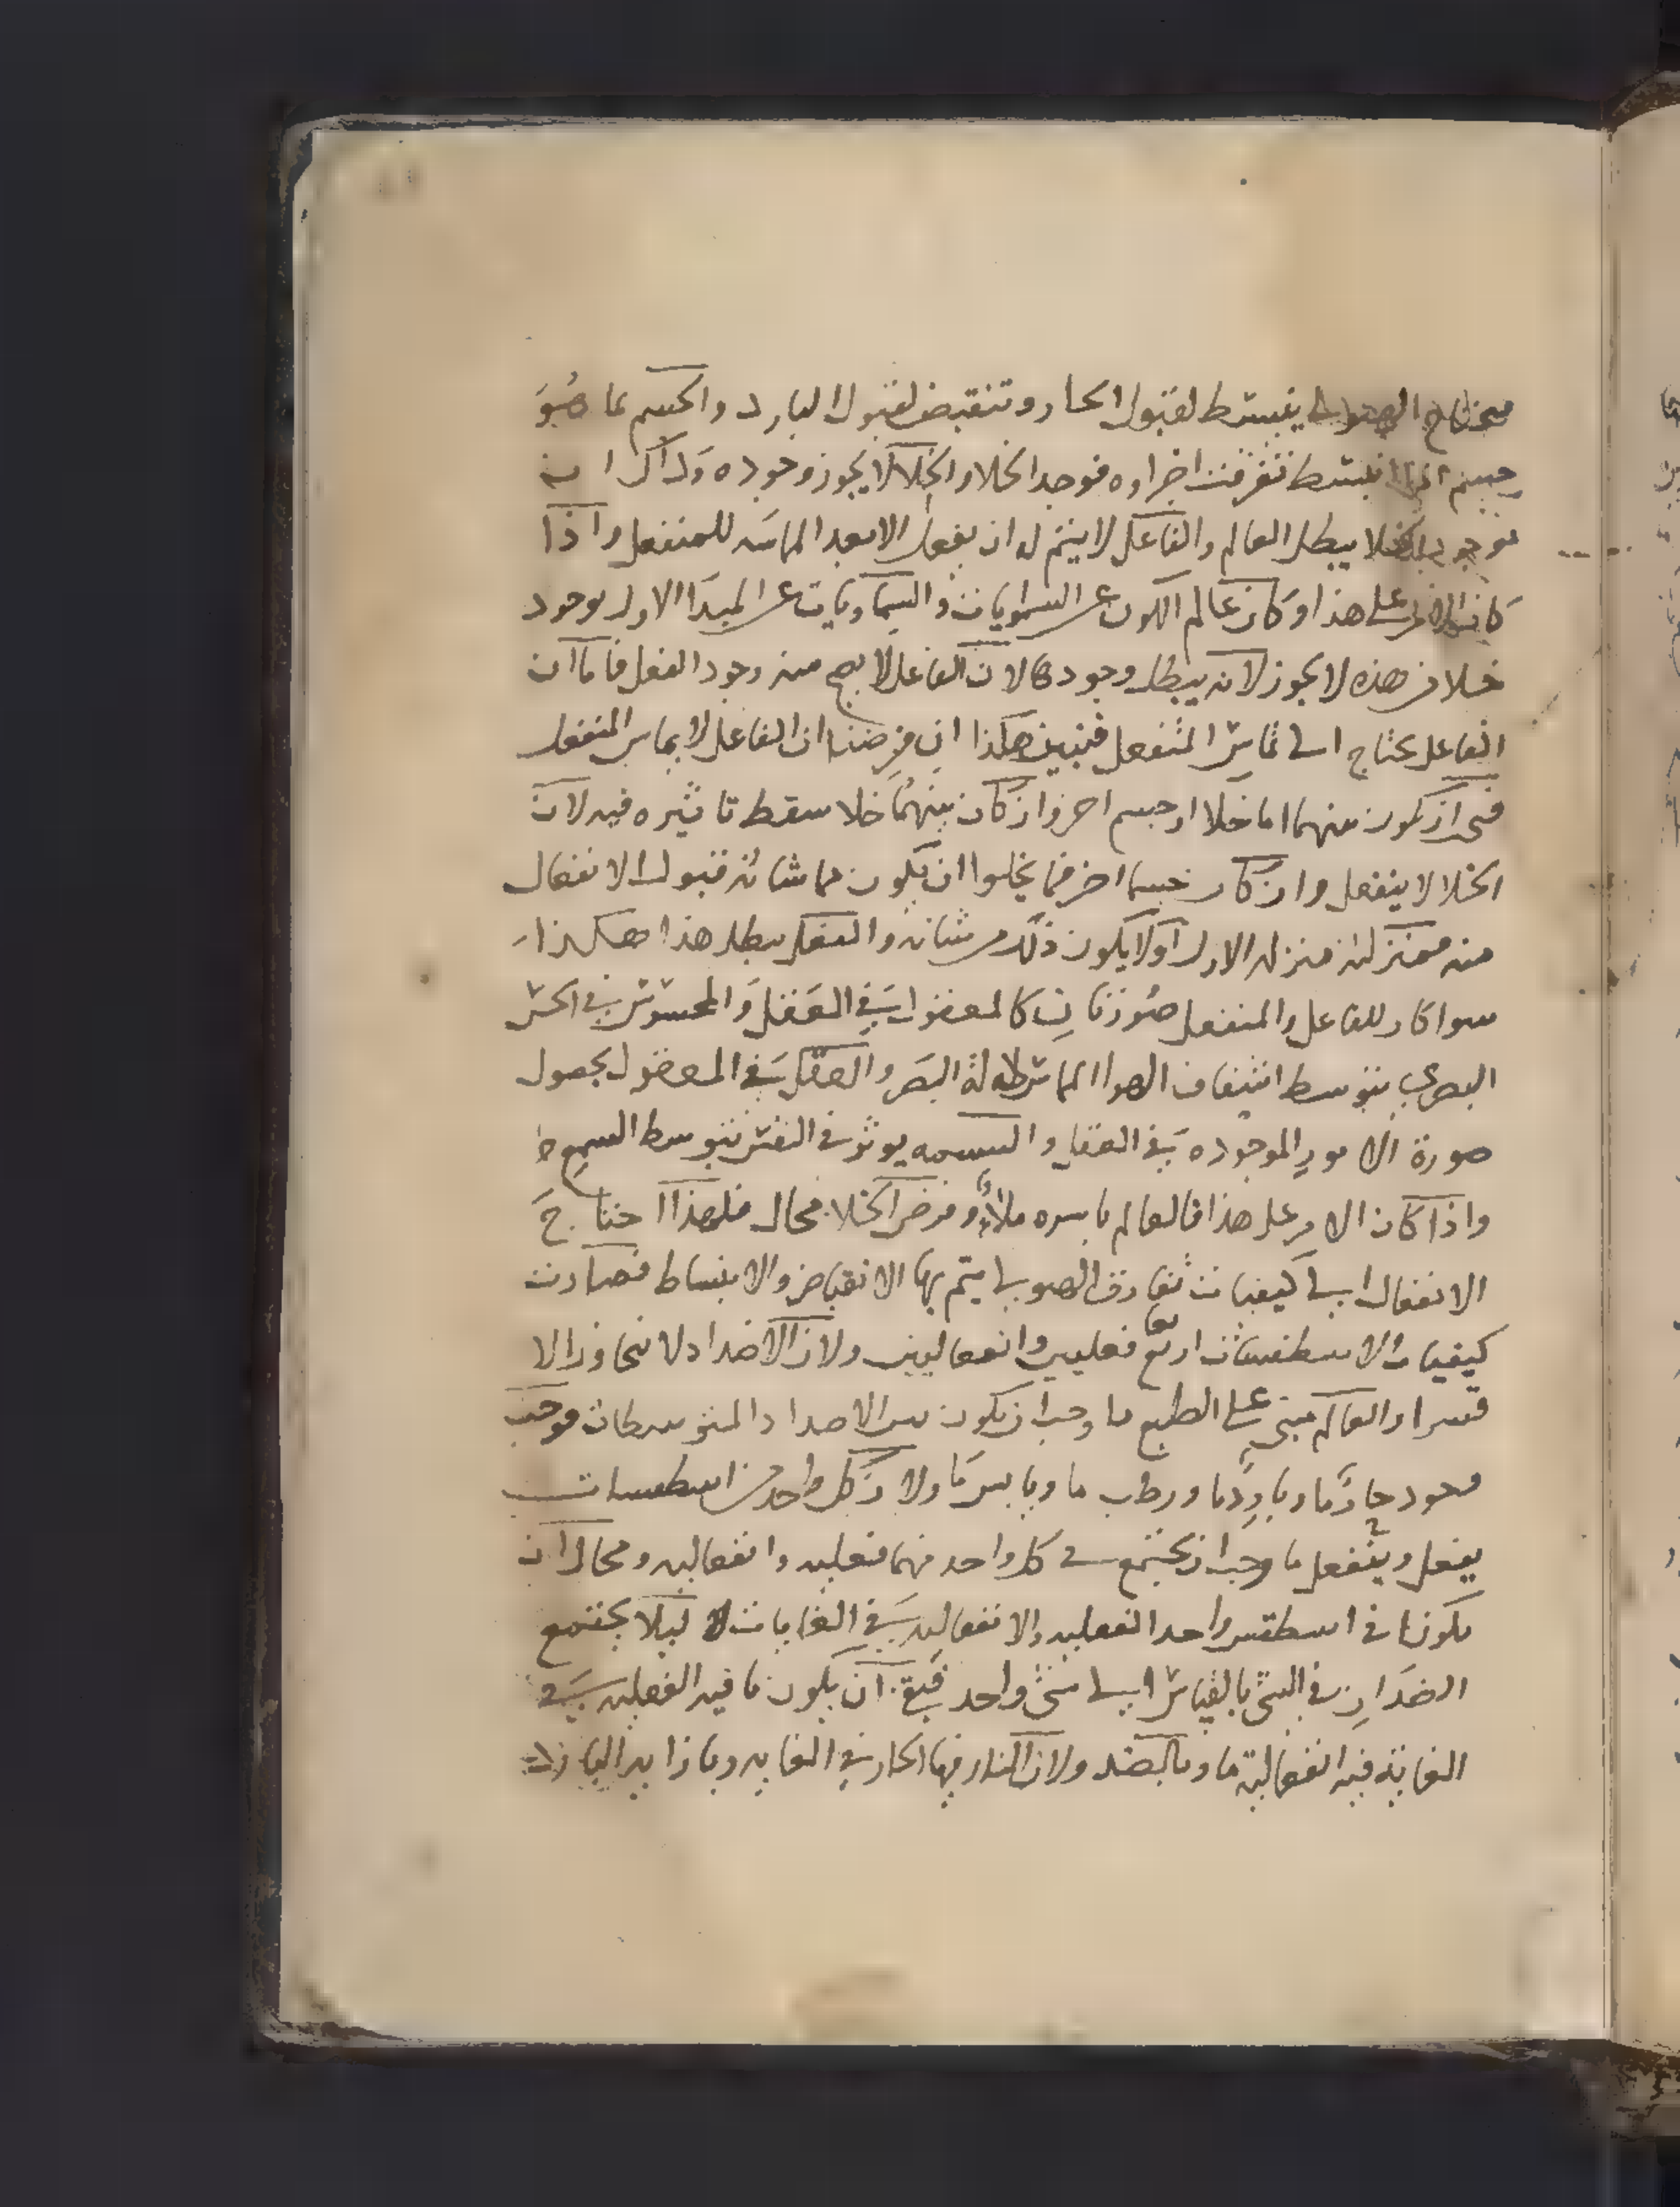 فتحتاج الهيولى ينبسط لقبول الحار وتنقبض لقبول البارد والجسم بما هو
جسم اذا انبسط تفرقت اجزاوه فوجد الخلا والخلا لا يجوز وجوده وذاك ان
بوجود الخلا يبطل العالم والفاعل لا يتم له ان يفعل الا بعد المماسه للمنفعل واذا
كان الامر على هذا وكان عالم الكون عن السماويات والسماويات عن المبدا الاول بوجود
خلا في هذه لا يجوز لانه يبطل وجودها لان الفاعل لا يصح منه وجود الفعل فاما ان
الفاعل يحتاج الى تماس المنفعل فتبين هكذا ان فرضنا ان الفاعل لا يماس المنفعل
فيجب ان يكون بينهما اما خلا او جسم اخر وان كان بينهما خلا سقط تاثيره فيه لان
الخلا لا ينفعل وان كان جسما اخر فما يخلوا ان يكون مما شانه قبول الانفعال
منه فمنزلته منزله الاول او لا يكون ذلك من شانه والفعل يبطل هذا هكذا
سوا كان للفاعل والمنفعل صورتان كالمعقول في العقل والمحسوس في الحس
البصري بتوسط اشفاف الهوا المماس لاله البصر والعقل في المعقول بحصول
صورة الامور الموجوده في العقل و يوثر في النفس بتوسط السمع
واذا كان الامر على هذا فالعالم باسره ملاء وفرض الخلا محال فلهذا احتاج
الانفعال الى كيفيات تقارن الهيولى يتم بها الانقباض والانبساط فصارت
كيفيات الاسطقسات اربع فعليين وانفعاليين ولان الاضداد لا تتجاوز الا
قسرا والعالم مبني على الطبع ما وجب ان يكون بين الاضداد المتوسطات فوجب
وجود حار ما وبارد ما ورطب ما ويابس ما ولان كل واحد من اسطقسات
يفعل وينفعل ما وجب ان يجتمع في كل واحد منهما فعليه وانفعاليه ومحال ان
يكونا في اسطقس واحد الفعليه والانفعاليه في الغايات ليلا يجتمع
الضدان في الشي بالقياس الى شي واحد فبقي ان يكون ما فيه الفعليه في
الغاية فيه انفعالية ما وبالضد ولان النار فيها الحار في الغايه وبازايه البارد